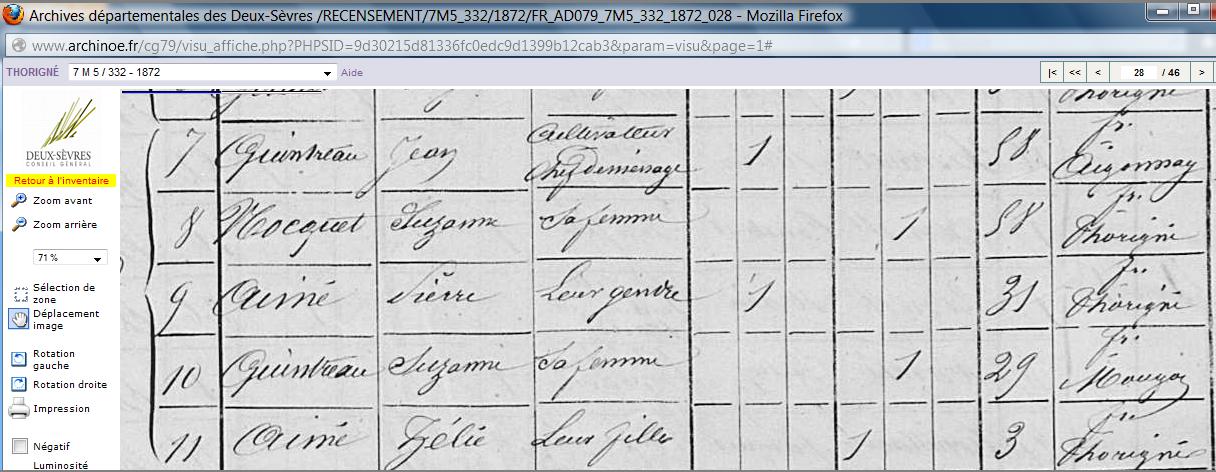 Archives départementales des Deux-Sèvres /RECENSEMENT/7M5_332/1872/FR_AD079_7M5_332_1872_028 - Mozilla Firefox
www.archinoe.fr/cg79/visu_affiche.php?PHPSID=9d30215d81336fc0edc9d1399b12cab3&param=visu&page=1#
THORIGNÉ 7 M 5 / 332 - 1872 Aide |< << < 28 / 46 >
DEUX-SÈVRES
CONSEIL GÉNÉRAL
Retour à l'inventaire
Zoom avant
Zoom arrière
71 %
Sélection de
zone
Déplacement
image
Rotation
gauche
Rotation droite
Impression
Négatif
Luminosité
Thorigné
7 Quintreau Jean Cultivateur Chef de ménage 1 58 fr. Aigonnay
8 Mocquet Suzanne Sa femme 1 58 fr. Thorigné
9 Aimé Pierre Leur gendre 1 31 fr. Thorigné
10 Quintreau Suzanne Sa femme 1 29 fr. Mougon
11 Aimé Zélie Leur fille 1 3 fr. Thorigné